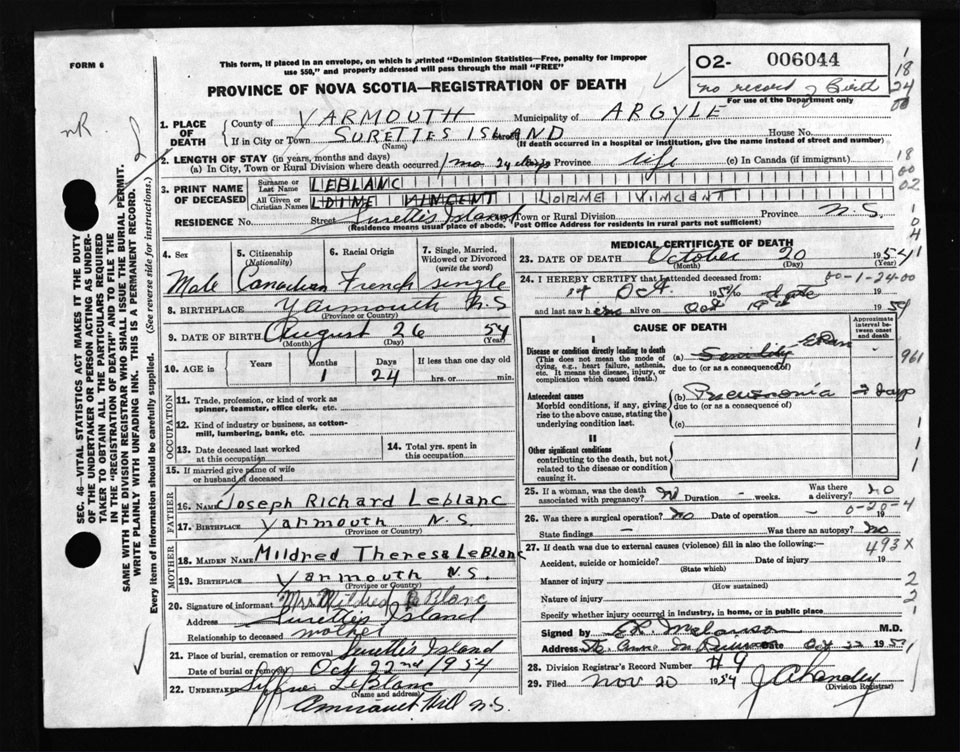 FORM 6
This form, if placed in an envelope, on which is printed "Dominion Statistics—Free, penalty for improper
use $50," and properly addressed will pass through the mail "FREE"
O2- 006044
no record of Birth
For use of the Department only
PROVINCE OF NOVA SCOTIA—REGISTRATION OF DEATH
nR.
18
24
00
1. PLACE OF DEATH
County of YARMOUTH Municipality of ARGYLE
If in City or Town SURETTES ISLAND Street House No.
(Name) (If death occurred in a hospital or institution, give the name instead of street and number)
2. LENGTH OF STAY (in years, months and days)
(a) In City, Town or Rural Division where death occurred 1 mo 24 days Province life (c) In Canada (if immigrant)
18
00
02
3. PRINT NAME OF DECEASED
Surname or Last Name LEBLANC
All Given or Christian Names VINCENT LORME VINCENT
RESIDENCE No. Street Surettes Island Town or Rural Division Province N.S.
(Residence means usual place of abode. Post Office Address for residents in rural parts not sufficient)
4. Sex Male
5. Citizenship (Nationality) Canadian
6. Racial Origin French
7. Single, Married, Widowed or Divorced (write the word) single
8. BIRTHPLACE Yarmouth N.S
(Province or Country)
9. DATE OF BIRTH August 26 54
(Month) (Day) (Year)
10. AGE in Years Months Days If less than one day old
1 24 hrs. or min.
OCCUPATION
11. Trade, profession, or kind of work as
spinner, teamster, office clerk, etc.
12. Kind of industry or business, as cotton-
mill, lumbering, bank, etc.
13. Date deceased last worked
at this occupation
14. Total yrs. spent in
this occupation
15. If married give name of wife
or husband of deceased
FATHER
16. Name Joseph Richard Leblanc
17. Birthplace Yarmouth N.S.
(Province or Country)
MOTHER
18. MAIDEN NAME Mildred Theresa LeBlanc
19. BIRTHPLACE Yarmouth N.S.
(Province or Country)
20. Signature of informant Mrs Mildred LeBlanc
Address Surettes Island
Relationship to deceased mother
21. Place of burial, cremation or removal Surettes Island
Date of burial or removal Oct 22nd 1954
22. UNDERTAKER LeBlanc
(Name and address)
Amirault Hill N.S.
MEDICAL CERTIFICATE OF DEATH
23. DATE OF DEATH October 20 1954
(Month) (Day) (Year)
00-1-24-00
24. I HEREBY CERTIFY that I attended deceased from:
Oct. 1954 to date 19
and last saw h im alive on Oct 1954
CAUSE OF DEATH
Approximate interval between onset and death
I
Disease or condition directly leading to death
(This does not mean the mode of
dying, e.g., heart failure, asthenia,
etc. It means the disease, injury, or
complication which caused death.)
(a)
due to (or as a consequence of)
Antecedent causes
Morbid conditions, if any, giving
rise to the above cause, stating the
underlying condition last.
(b) Pneumonia 2 days
due to (or as a consequence of)
(c)
II
Other significant conditions
contributing to the death, but not
related to the disease or condition
causing it.
961
25. If a woman, was the death
associated with pregnancy? Duration - weeks. Was there a delivery? no
0-28-4
26. Was there a surgical operation? No Date of operation - 19
State findings - Was there an autopsy? No
493X
27. If death was due to external causes (violence) fill in also the following:—
Accident, suicide or homicide? Date of injury 19
(State which)
Manner of injury
(How sustained)
Nature of injury
Specify whether injury occurred in industry, in home, or in public place
Signed by M.D.
Address Date Oct 22 195
28. Division Registrar's Record Number #9
29. Filed Nov 20 1954
(Division Registrar)
SEC. 46—VITAL STATISTICS ACT MAKES IT THE DUTY
OF THE UNDERTAKER OR PERSON ACTING AS UNDER-
TAKER TO OBTAIN ALL THE PARTICULARS REQUIRED
IN THE "REGISTRATION OF DEATH" AND TO FILE THE
SAME WITH THE DIVISION REGISTRAR WHO SHALL ISSUE THE BURIAL PERMIT.
WRITE PLAINLY WITH UNFADING INK. THIS IS A PERMANENT RECORD.
Every item of information should be carefully supplied. (See reverse side for instructions.)